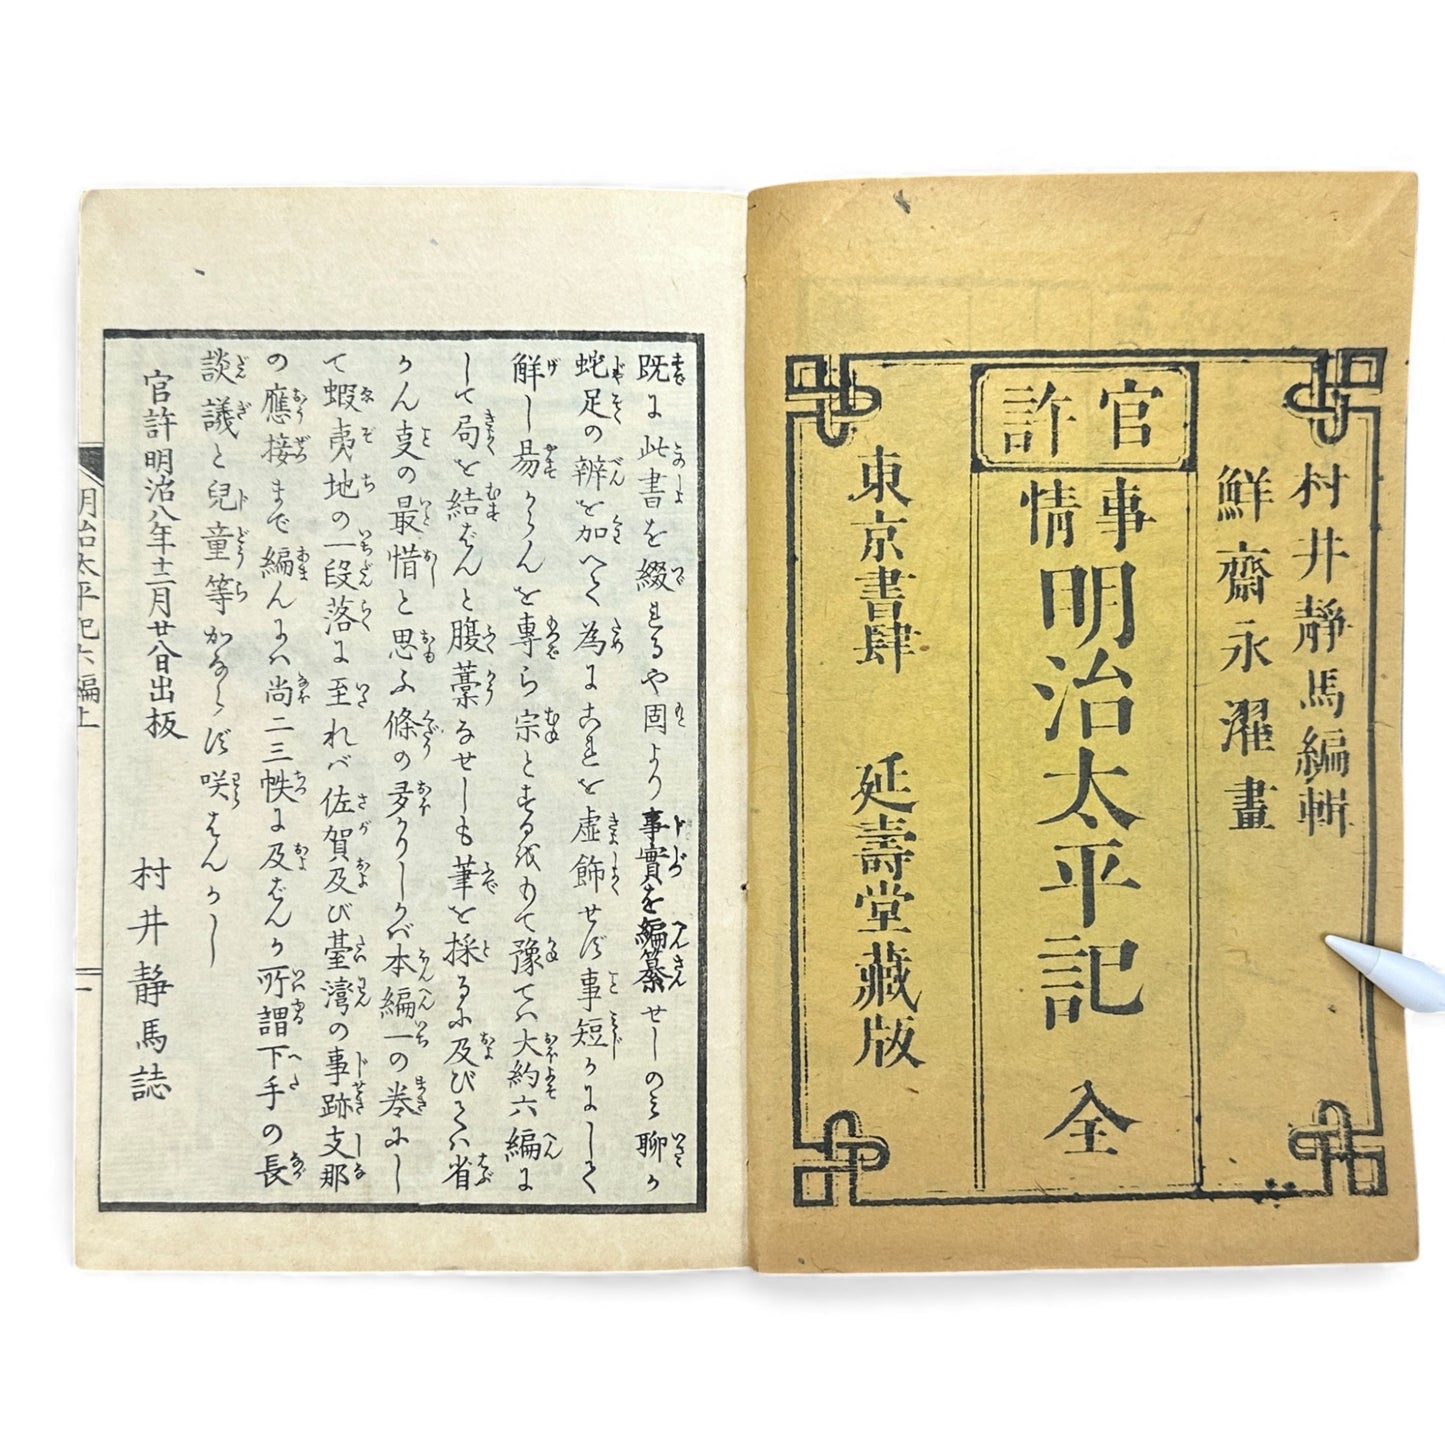 村井靜馬編輯
鮮齋永濯畫
官許
事情
明治太平記 全
東京書肆 延壽堂藏版
既に此書を綴るや固より事實を編纂せしのミ聊か
蛇足の辨を加へて為にこれを虚飾せず事短かにして
解し易からんを專ら宗とする故もて豫てハ大約六編に
して局を結ばんと腹藁なせしも筆を採るに及びてハ省
かん支の最惜と思ふ條の多かりしかバ本編一の巻にし
て蝦夷地の一段落に至れバ佐賀及び臺灣の事跡支那
の應接まで編んにハ尚二三帙に及ばんか所謂下手の長
談議と兒童等かならず咲はんかし
官許明治八年十二月廿八日出板
村井靜馬誌
明治太平記六編上
一